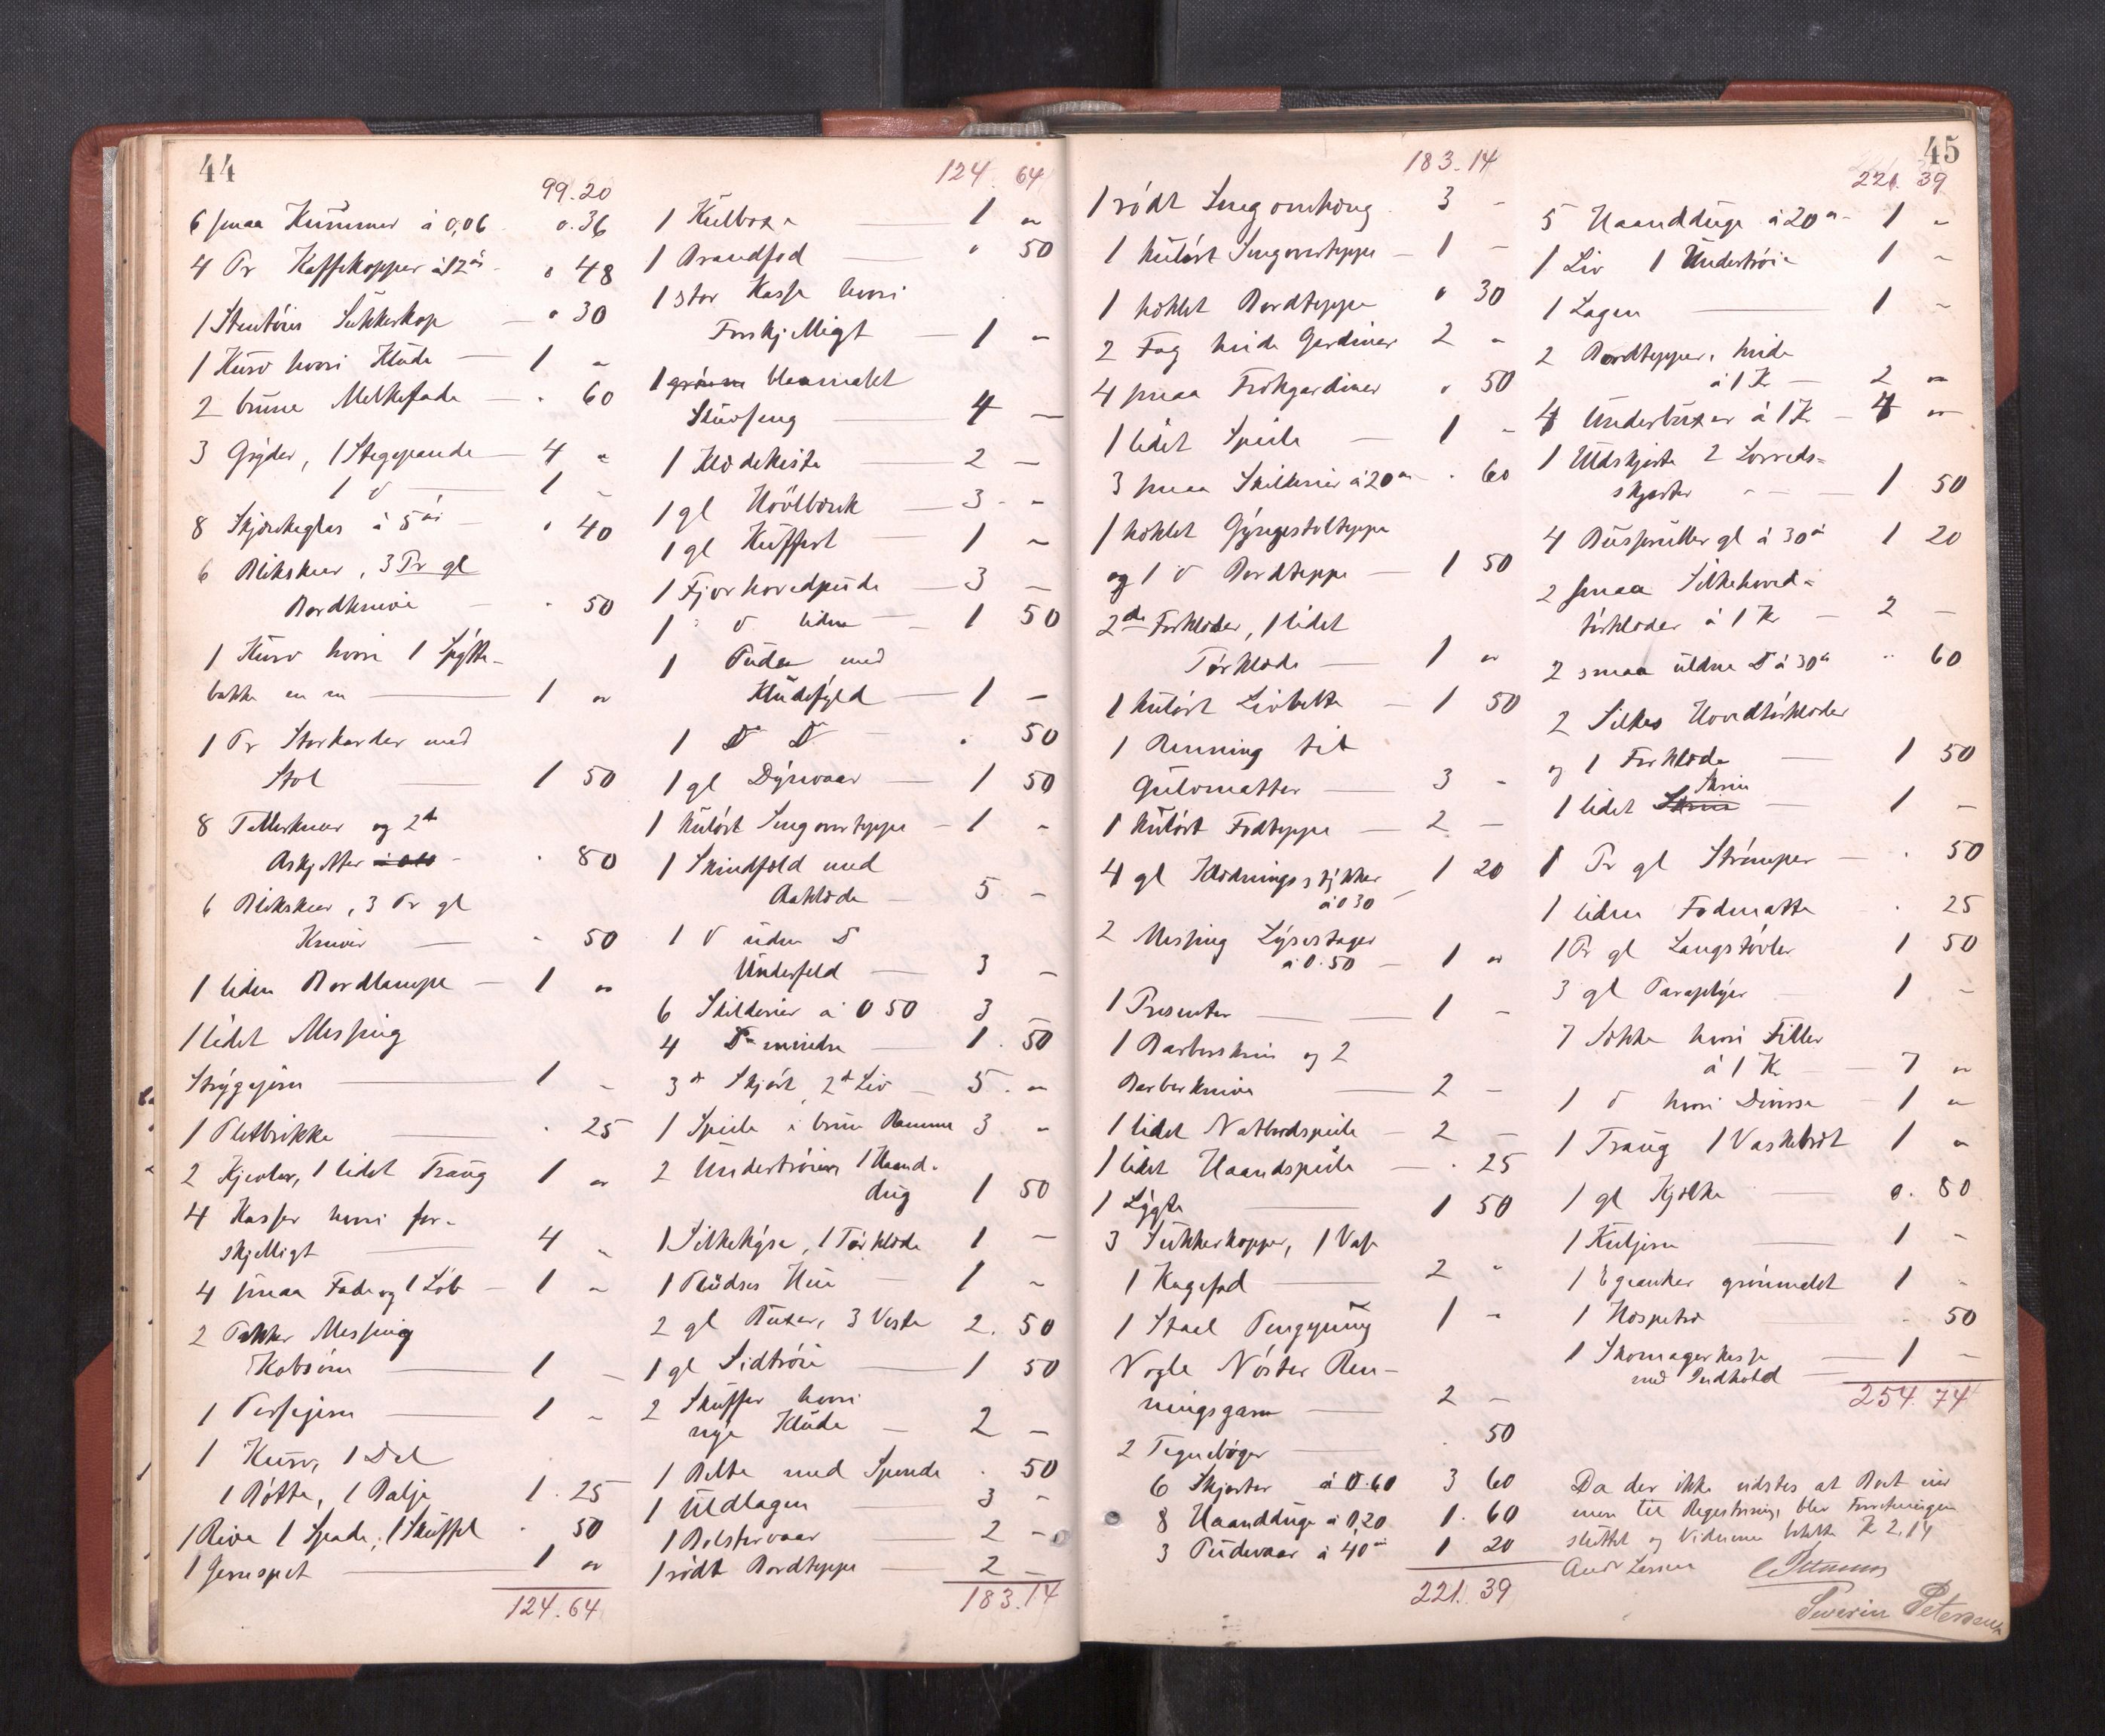 44
99.20
6 smaa Kummer à 0,06 0.36
4 Pr Kaffekopper à 12 ør 0 48
1 Stentøies Sukkerkop — 0 30
1 Kurv hvori Klude — 1 "
2 brune Melkefade — . 60
3 Gryder, 1 Stegepande — 4 "
1 D — 1 -
8 Skjænkeglas à 5 ør — 0 40
6 Blikskeer, 3 Pr gl
Bordknive - . 50
1 Kurv hvori 1 Spytte-
bakke en m — 1 "
1 Pr Storkarder med
Stol — 1 50
8 Tallerkner og 2 st
Askjetter - . 80
6 Blikskeer, 3 Pr gl
Knive — - 50
1 liden Bordlampe — 1 "
1 lidet Messing
Strygejern — 1 -
1 Pletbrikke — . 25
2 Kjevler, 1 lidet Traug 1 "
4 Kasser hvori for-
skjelligt — 4 "
4 smaa Fade og 1 Løb — 1 -
2 Pakker Messing
Kobsøm — 1 -
1 Persejern — 1 -
1 Kurv, 1 Del
1 Bøtte, 1 Balje 1 . 25
1 Rive 1 Spade, 1 Skuffel . 50
1 Jernspet — 1 "
124.64
124. 64
1 Kulboxe — 1 "
1 Brandfod — " 50
1 stor Kasse hvori
Forskjelligt — 1 -
1 grønn blaamalet
Skuvseng — 4 —
1 Klædekiste — 2 —
1 gl Høvlbænk — 3 - -
1 gl Kuffert — 1 -
1 Fjorhovedpude — 3 —
1 D liden — 1 50
1 Pude med
Kludefyld — 1 -
1 D D — . 50
1 gl Dynevaar — 1 50
1 kulørt Sengoverteppe — 1 -
1 Skindfæld med
Aaklæde — 5 -
1 D uden D
Underfeld — 3 -
6 Skilderier à 0 50 3 -
4 D mindre — 1 . 50
3 st Skjørt, 2 st Liv — 5 . "
1 Speile i brun Ramme 3 -
2 Undertrøier, 1 Haand-
dug 1 50
1 Silkekyse, 1 Tørklæde 1 —
1 Pludses Hue — 1 -
2 gl Buxer, 3 Veste 2. 50
1 gl Sidtrøie — 1 50
2 Skuffer hvori
nye Klude — 2 -
1 Belte med Spende . 50
1 Uldlagen — 3 -
1 Bolstervaar — 2 -
1 rødt Bordteppe — 2 -
183.14
45
183.14
1 rødt Sengomhæng 3 -
1 kulørt Sengoverteppe — 1 -
1 hæklet Bordteppe " 30
2 Fag hvide Gardiner 2 "
4 smaa Trækgardiner " 50
1 lidet Speile — 1 -
3 smaa Skilderier à 20 ør . 60
1 hæklet Gyngestolteppe
og 1 D Bordteppe — 1 50
2 st Forklæder, 1 lidet
Tørklæde — 1 "
1 kulørt Livbelte — 1 50
1 Renning til
Gulvmatter — 3 -
1 kulørt Fodteppe — 2 —
4 gl Klædningsstykker 1 20
à 0 30
2 Messing Lysestager
à 0.50 — 1 "
1 Presenter — 1 -
1 Barberskrin og 2
Barberknive — 2 -
1 lidet Natbordspeile — 2 —
1 lidet Haandspeile — . 25
1 Lygte — 1 50
3 Sukkerkopper, 1 Vase
1 Kagefad — 2 "
1 Staal Pengepung 1 -
Nogle Nøster Ren-
ningsgarn — 2 -
2 Tegnebøger — . 50
6 Skjorter à 0.60 3 60
8 Haandduge à 0,20 1. 60
3 Pudevaar à 40 ør 1 20
221. 39
221. 39
5 Haandduge à 20 ør 1 -
1 Liv 1 Undertrøie 1 -
1 Lagen — 1 -
2 Bordtepper, hvide
à 1 K — 2 "
4 Underbuxer à 1 K — 4 "
1 Uldskjorte 2 Lerreds-
skjorter — 1 50
4 Busseruller gl à 30 ø 1 20
2 smaa Silkehoved-
tørklæder à 1 K — 2 -
2 smaa uldne D à 30 ø " 60
2 Silkes Hovedtørklæder
og 1 Forklæde — 1 50
1 lidet Skrin — 1 -
1 Pr gl Strømper — . 50
1 liden Fodmatte . 25
1 Pr gl Langstøvler 1 50
3 gl Paraplyer — 1 -
7 Sække hvori Filler
à 1 K — 7 "
1 D hvori Diverse — 1 "
1 Traug 1 Vaskebræt 1 "
1 gl Kjælke — 0. 80
1 Kuljern — 1 -
1 Egeanker grønmalet 1 -
1 Hespetræ — . 50
1 Skomagerkasse — 1 -
med Indhold
254. 74
Da der ikke vidstes at Boet eier
mere til Registrering, blev Forretningen
sluttet og Vidnerne betalte K 2,14
And Larsen
Severin Petersen